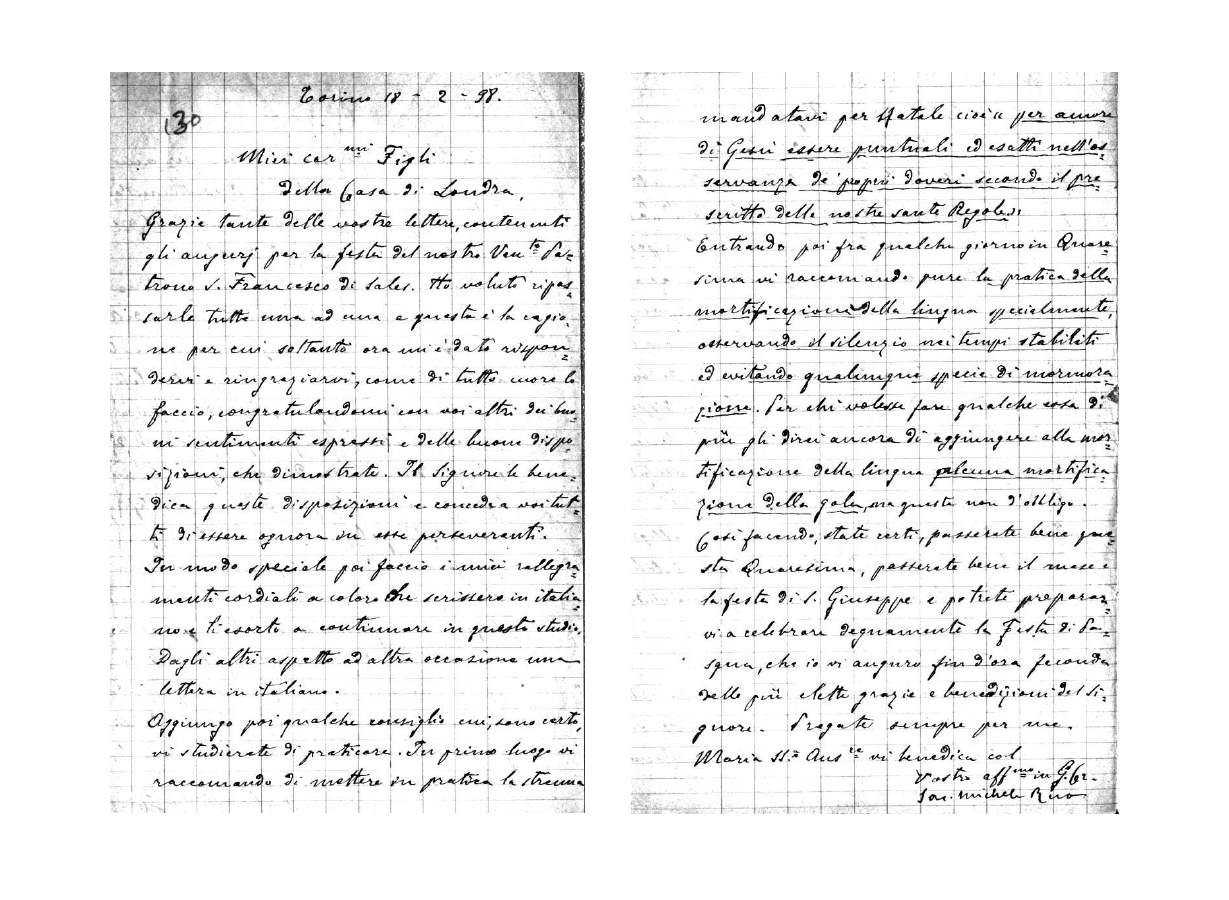 Torino 18 - 2 - 98.
130
Miei car.mi Figli
della Casa di Londra,
Grazie tante delle vostre lettere, contenenti
gli augurj per la festa del nostro Ven.to Pa=
trono S. Francesco di Sales. Ho voluto ripas=
sarle tutte una ad una e questa è la cagio=
ne per cui soltanto ora mi è dato rispon=
dervi e ringraziarvi, come di tutto cuore lo
faccio, congratulandomi con voi altri dei buo
ni sentimenti espressi e delle buone dispo
sizioni, che dimostrate. Il Signore le bene=
dica queste disposizioni e conceda a voi tut=
ti di essere ognora in esse perseveranti.
In modo speciale poi faccio i miei rallegra=
menti cordiali a coloro che scrissero in italia=
no e li esorto a continuare in questo studio.
Dagli altri aspetto ad altra occasione una
lettera in italiano.
Aggiungo poi qualche consiglio cui, sono certo,
vi studierete di praticare. In primo luogo vi
raccomando di mettere in pratica la strenna
mandatavi per Natale cioè « per amore
di Gesù essere puntuali ed esatti nell'os=
servanza de' proprii doveri secondo il pre=
scritto delle nostre sante Regole»
Entrando poi fra qualche giorno in Quare=
sima vi raccomando pure la pratica della
mortificazione della lingua specialmente,
osservando il silenzio nei tempi stabiliti
ed evitando qualunque specie di mormora
zione. Per chi volesse fare qualche cosa di
più gli direi ancora di aggiungere alla mor=
tificazione della lingua alcuna mortifica
zione della gola, ma questa non d'obbligo.
Così facendo, state certi, passerete bene que=
sta Quaresima, passerete bene il mese e
la festa di S. Giuseppe e potrete preparar=
vi a celebrare degnamente la Festa di Pa=
squa, che io vi auguro fin d'ora feconda
delle più elette grazie e benedizioni del Si=
gnore. Pregate sempre per me.
Maria SS.a Aus.ce vi benedica col
Vostro aff.mo in G. Cr.
Sac. Michele Rua